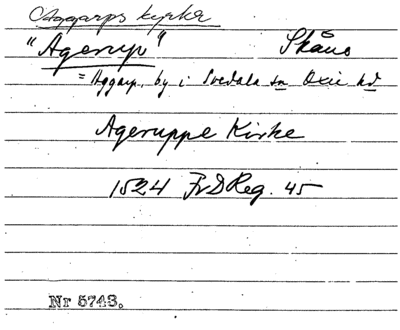 Aggarps kyrka
"Agerup" Skåne
= Aggarp, by i Svedala sn Oxie hd
Ageruppe Kirke
1524 Fr D Reg. 45
Nr 5743.